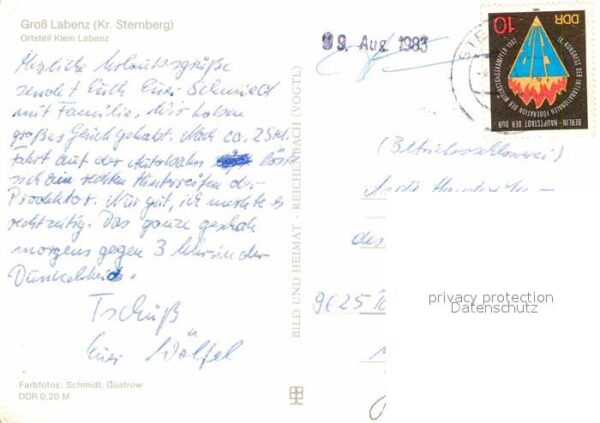 Groß Labenz (Kr. Sternberg)
Ortsteil Klein Labenz
Herzliche Urlaubsgrüße
sendet Euch Euer Schmied
mit Familie. Wir haben
großes Glück gehabt. Nach ca. 2 Std.
Fahrt auf der Autobahn löste
sich am rechten Hinterreifen der
Profilator. Nur gut, ich merkte es
rechtzeitig. Das ganze geschah
morgens gegen 3 Uhr in der
Dunkelheit.
Tschüß
Euer Wölfel
Farbfotos: Schmidt, Güstrow
DDR 0,20 M
BILD UND HEIMAT · REICHENBACH (VOGTL)
09. Aug. 1983
10
DDR
IX. KONGRESS DER INTERNATIONALEN FÖDERATION DER WIDERSTANDSKÄMPFER 1982
BERLIN - HAUPTSTADT DER DDR
(Betriebsschlosserei)
des
9625
privacy protection
Datenschutz